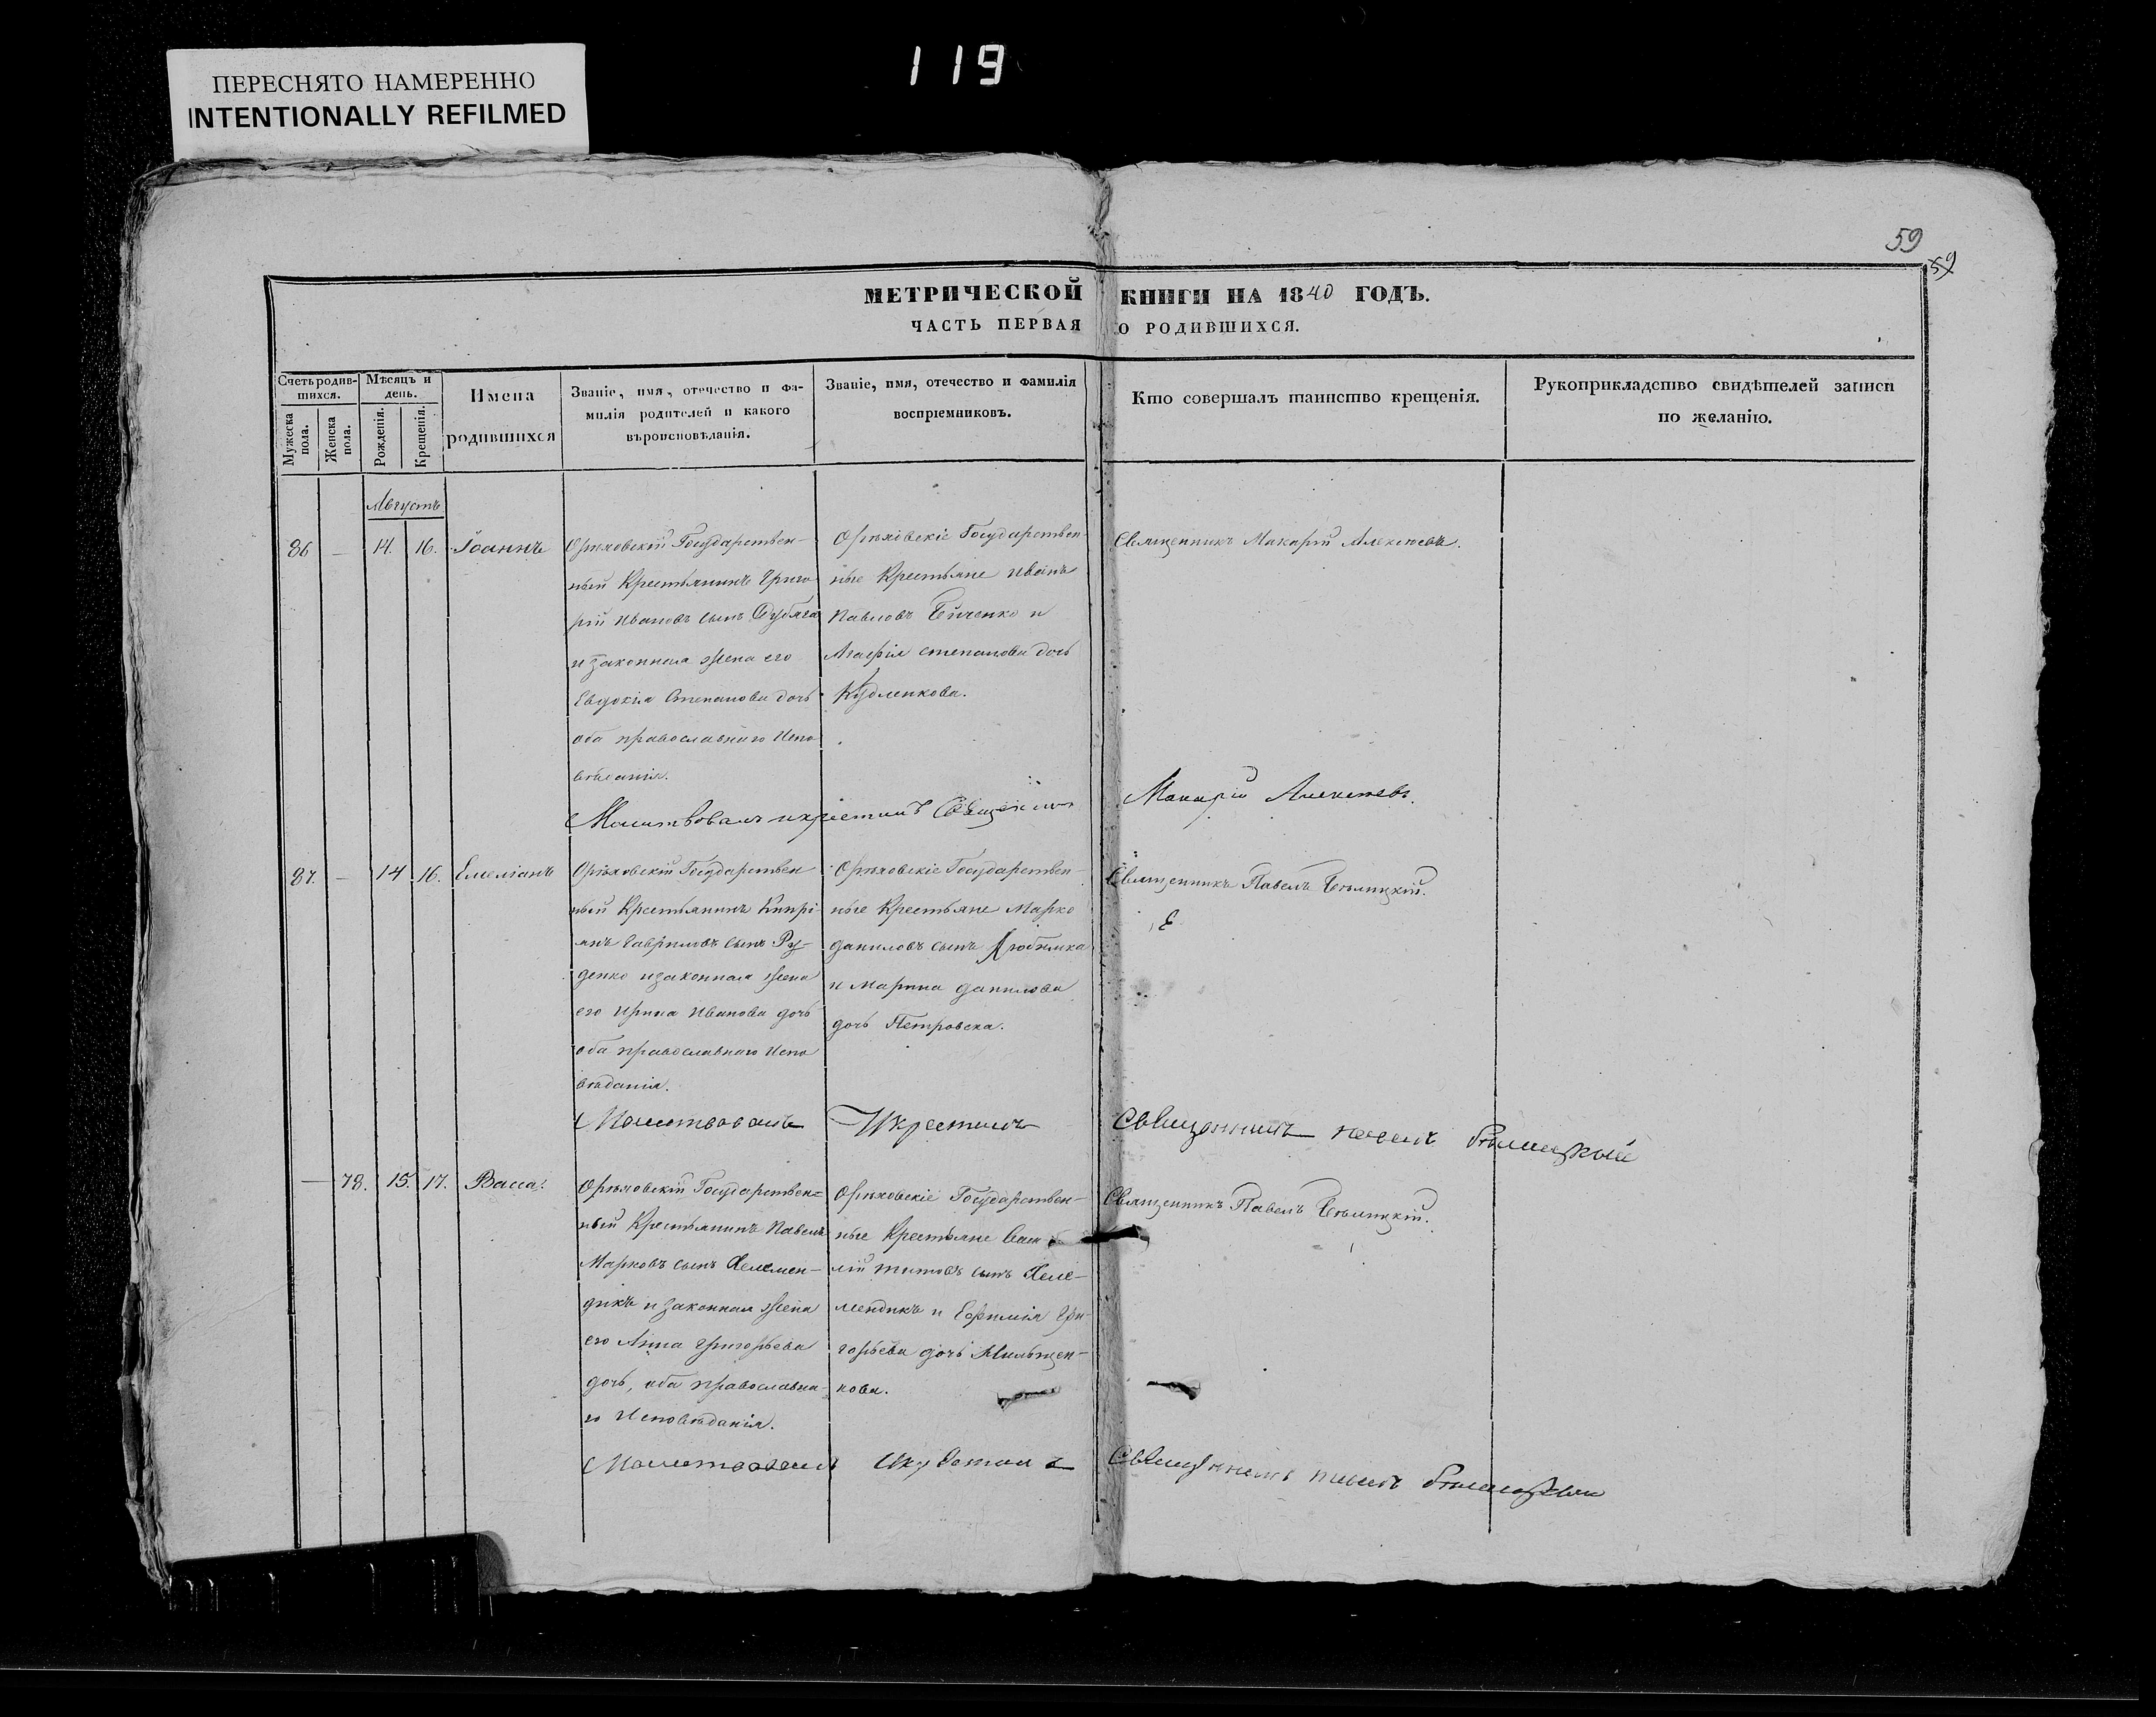 ПЕРЕСНЯТО НАМЕРЕННО
INTENTIONALLY REFILMED
119
59
59
МЕТРИЧЕСКОЙ КНИГИ НА 1840 ГОДЪ.
ЧАСТЬ ПЕРВАЯ О РОДИВШИХСЯ.
Счетъ родив-
шихся.
Мужеска пола.
Женска пола.
Мѣсяцъ и
день.
Рожденія.
Крещенія.
Имена
родившихся
Званіе, имя, отечество и фа-
милія родителей и какого
вѣроисповѣданія.
Званіе, имя, отечество и фамилія
воспріемниковъ.
Кто совершалъ таинство крещенія.
Рукоприкладство свидѣтелей записи
по желанію.
Августъ
86 — 14. 16. Іоаннъ
Орѣховскій Государствен-
ный Крестьянинъ Григо
рій Ивановъ сынъ
и законная жена его
Евдокія Степанова дочь
оба православнаго Испо
вѣданія.
Орѣховскіе Государствен-
ные Крестьяне Иванъ
Павловъ и
Агафія степанова дочь
Кудленкова.
Священникъ Макарій Алексѣевъ.
Молитвовалъ и крестилъ Священникъ Макарій Алексѣевъ.
87. — 14 16. Емеліанъ
Орѣховскій Государствен
ный Крестьянинъ Кипрі
янъ Гавриловъ сынъ Ру-
денко и законная жена
его Ирина Иванова дочь
оба православнаго Испо
вѣданія.
Орѣховскіе Государствен-
ные Крестьяне Марко
даниловъ сынъ Любимка
и Марина данилова
дочь Петровска.
Священникъ Павелъ Бѣлицкій.
Молитвовалъ И крестилъ Священникъ павелъ бѣлицкый
— 78. 15. 17. Васса.
Орѣховскій Государствен=
ный Крестьянинъ Павелъ
Марковъ сынъ Келемен-
дикъ и законная жена
его Анна Григорьева
дочь, оба православна-
го Исповѣданія.
Орѣховскіе Государствен-
ные Крестьяне Васи
лій титовъ сынъ Келе-
мендикъ и Евфимія Гри-
горьева дочь
кова.
Священникъ Павелъ Бѣлицкій.
Молитвовалъ Икрестилъ Священникъ павелъ бѣлицкый